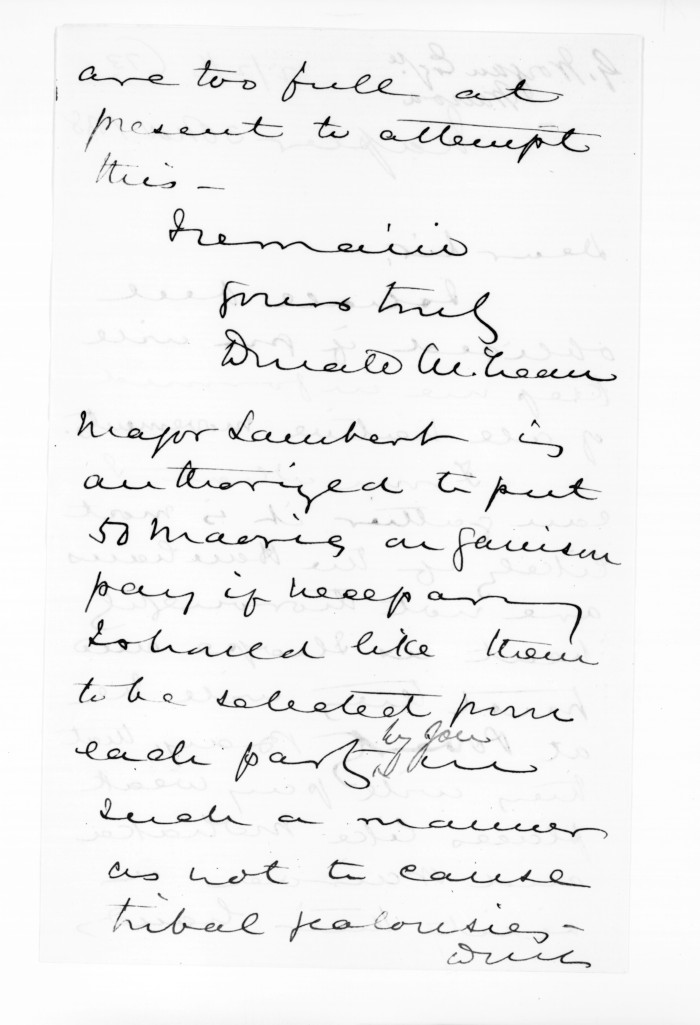 are too full at
present to attempt
this -
I remain
Yours truly
Donald McLean
Major Lambert is
authorized to put
50 Maories on garrison
pay if necessary
I should like them
to be selected from
each party by you in
such a manner
as not to cause
tribal jealousies -
DMcL